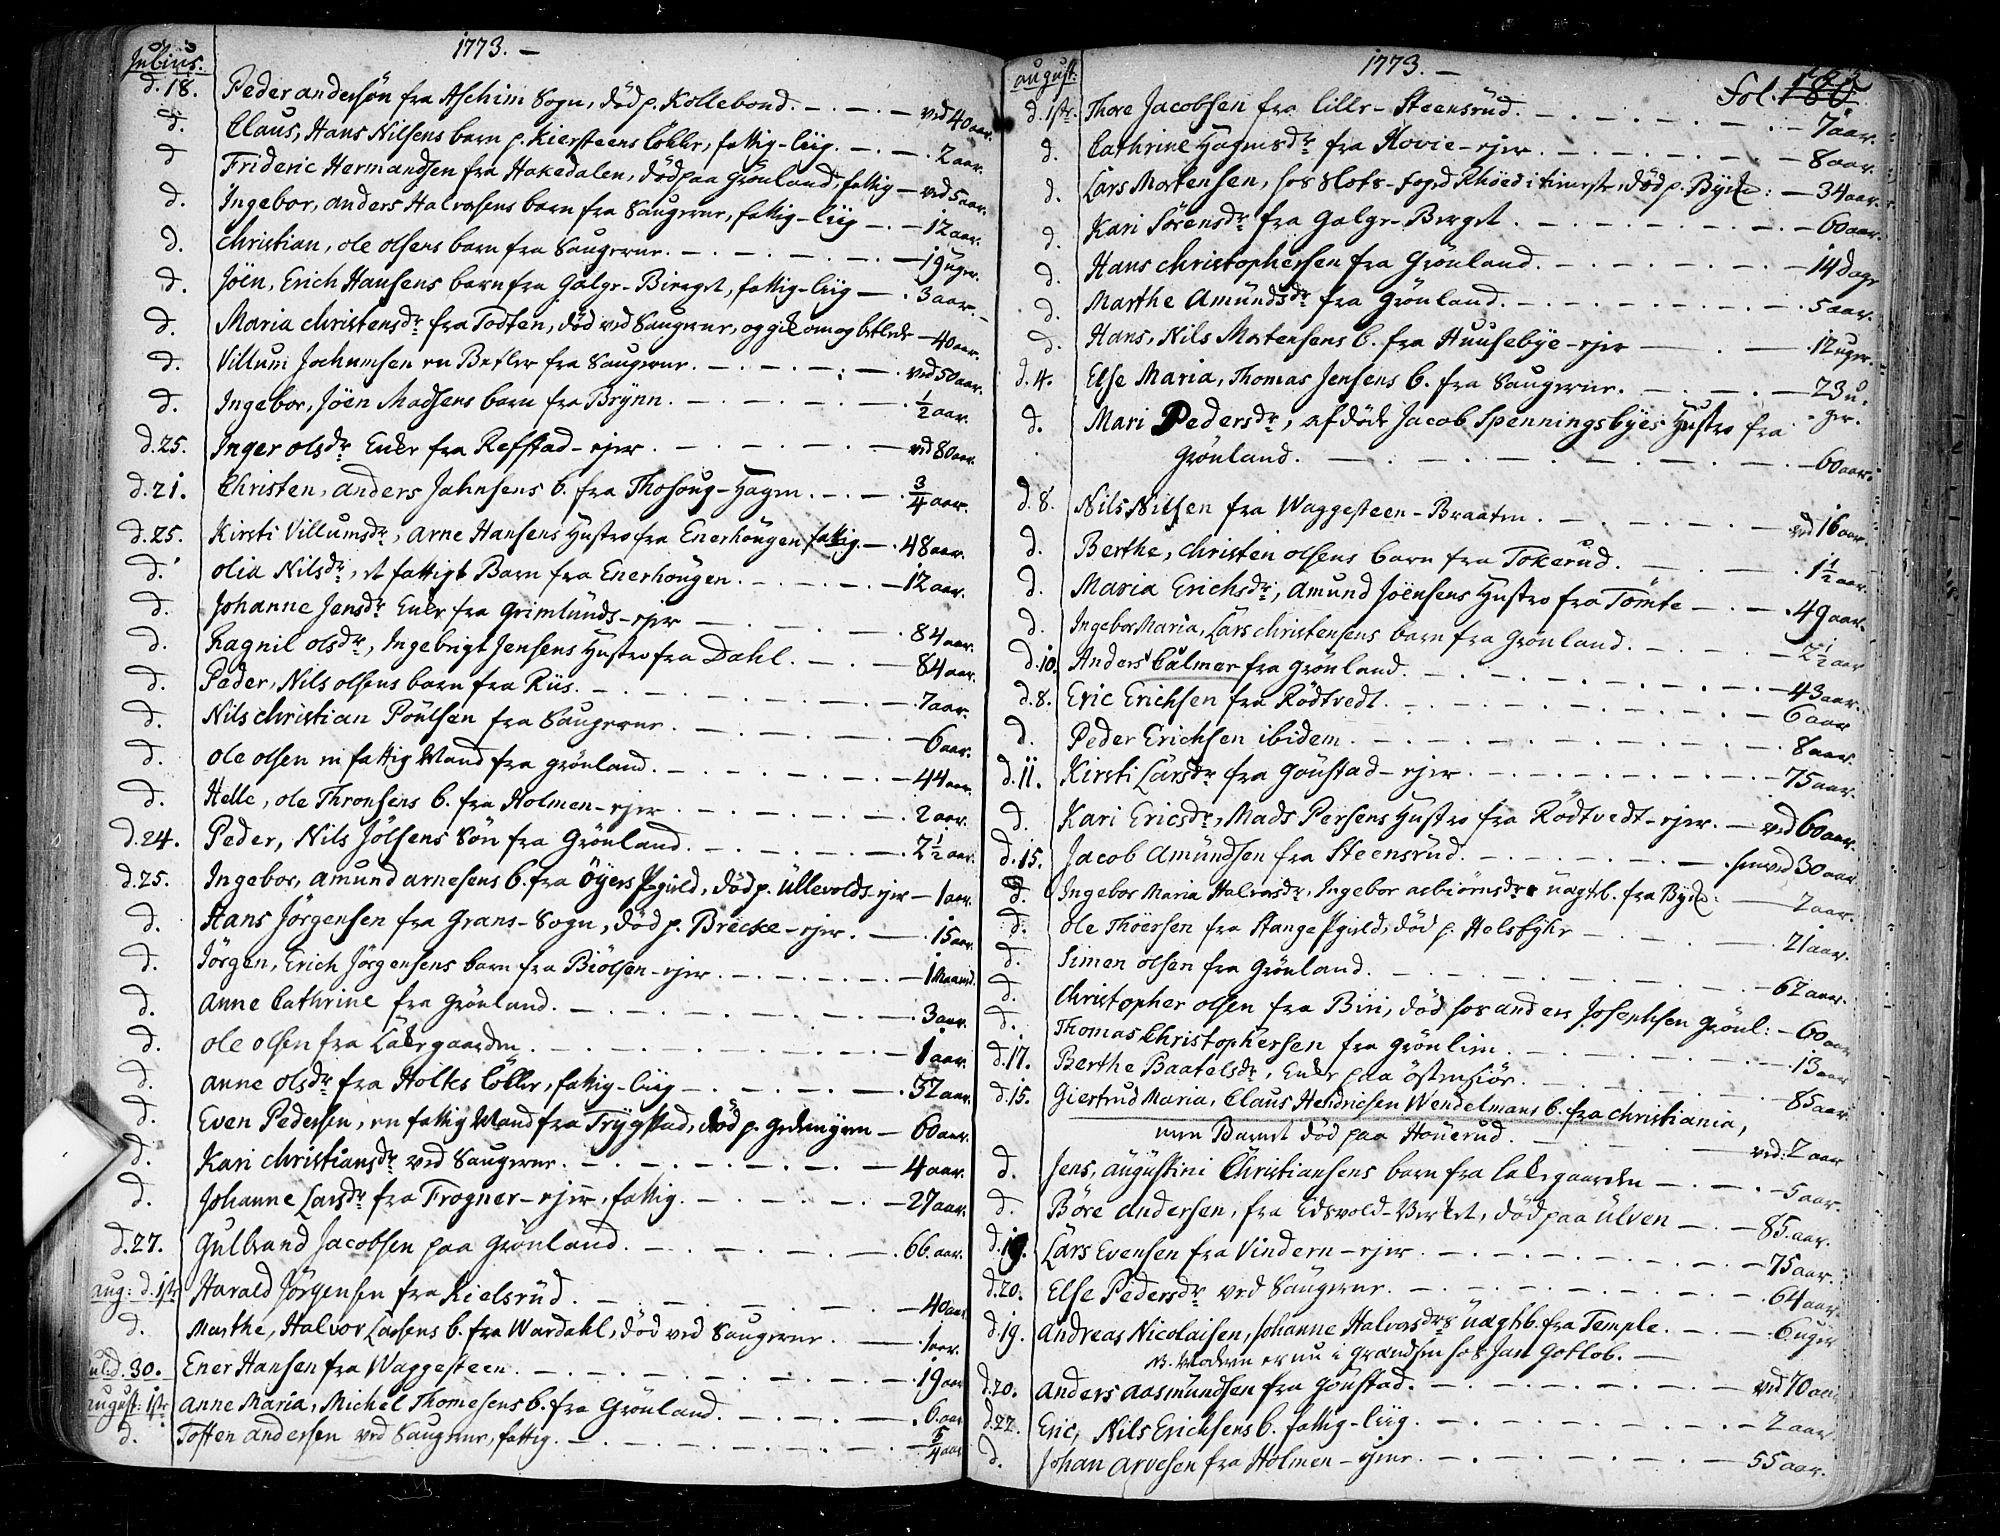 1773. -
Julius.
d. 18. Peder andersøn fra Aschim Sogn, død p. Kollebond. - ved 40 aar.
d. Claus, Hans Nilsens barn p. Kiersteens løkker, fattig-liig. - 2 aar.
d. Frideric Hermandsen fra Hakedalen, død paa Grønland, fattig - ved 5 aar.
d. Ingebor, anders Halvorsens barn fra Saugerne, fattig-liig - 12 aar.
d. Christian, ole olsens barn fra Saugerne. - 19 uger.
d. Jöen, Erich Hansens barn fra Galge-Bierget, fattig-liig - 3 aar.
d. Maria Christensdr fra Todten, død ved Saugerne, og gik om og betlede - 40 aar.
d. Villum Jochumsen en Betler fra Saugerne. - ved 50 aar.
d. Ingebor, Jöen Madsens barn fra Brÿnn. - 1/2 aar.
d. 25. Inger olsdr Enke fra Refstad-ejer - ved 80 aar.
d. 21. Christen, anders Jahnsens b. fra Thosoug-Hagen. - 3/4 aar.
d. 25. Kirsti Villumsdr, Arne Hansens Hustro fra Enerhougen fattig. - 48 aar.
d. olia Nilsdr, et fattigt Barn fra Enerhougen. - 12 aar.
d. Johanne Jensdr Enke fra Grimlunds-ejer - 84 aar.
d. Ragnil olsdr, Ingebrigt Jensens Hustro fra Dahl. - 84 aar.
d. Peder, Nils olsens barn fra Riis. - 7 aar.
d. Nils christian Poulsen fra Saugerne - 6 aar.
d. ole olsen en fattig Mand fra Grønland. - 44 aar.
d. Helle, ole Thronsens b. fra Holmen-ejer - 2 aar.
d. 24. Peder, Nils Jölsens Søn fra Grønland. - 2 1/2 aar.
d. 25. Ingebor, amund arnesens b. fra Öyers Pgield, død p. Ullevolds-ejer - 1 aar.
d. Hans Jørgensen fra Grans-Sogn, død p. Brecke-ejer. - 15 aar.
d. Jørgen, Erich Jørgensens barn fra Biölsen-ejer. - 1 Maaned.
d. Anne Cathrine fra Grønland. - 3 aar.
d. ole olsen fra Lakegaarden. - 1 aar.
d. anne olsdr fra Holtes løkke, fattig-liig - 32 aar.
d. Even Pedersen, en fattig Mand fra Trygstad, død p. - 60 aar.
d. Kari christiansdr ved Saugerne. - 4 aar.
d. Johanne Larsdr fra Frogner-ejer, fattig. - 27 aar.
d. 27. Gulbrand Jacobsen paa Grønland. - 66 aar.
aug: d. 1ste Harald Jørgensen fra Kielsrud. - 40 aar
d. Marthe, Halvor Larsens b. fra Wardahl, død ved Saugerne. - 1 aar.
Jul. d. 30. Ener Hansen fra Waggesteen. - 19 aar
august: 1ste Anne Maria, Michel Thomesens b. fra Grønland. - 6 aar
d. Tosten andersen ved Saugerne, fattig. - 5/4 aar
1773. -
Fol. 180
august:
d. 1ste. Thore Jacobsen fra lille-Steensrud. - 7 aar.
d. Cathrine Hagensdr fra Hovie-ejer. - 8 aar.
d. Lars Mortensen, hos Slots-foged Rhöed i tieneste, død p. Byite: - 34 aar.
d. Kari Sörensdr fra Galge-Berget. - 60 aar.
d. Hans christophersen fra Grønland. - 14 dage
d. Marthe Amundsdr fra Grønland. - 5 aar.
d. Hans, Nils Mortensens b. fra Huusebÿe-ejer - 12 uger.
d. 4. Else Maria, Thomas Jensens b. fra Saugerne. - 23 u-
d. Mari Pedersdr, afdøde Jacob Spenningsbyes Hustro fra - ger.
Grønland. - 60 aar.
d. 8. Nils Nilsen fra Waggesteen-Braaten. - ved 16 aar.
d. Berthe, christen olsens barn fra Tokerud. - 1 1/2 aar.
d. Maria Erichsdr, Amund Jöensens Hustro fra Tömte - 49 aar.
d. Ingebor Maria, Lars christensens barn fra Grønland. - 2 1/2 aar
d. 10. Anders Calmer fra Grønland. - 43 aar.
d. 8. Eric Erichsen fra Rödtvedt. - 6 aar
d. Peder Erichsen ibidem. - 8 aar.
d. 11. Kirsti Larsdr fra Goustad-ejer. - 75 aar.
d. Kari Ericsdr, Mads Persens Hustro fra Rödtvedt-ejer. - ved 60 aar.
d. 15. Jacob Amundsen fra Steensrud. - henved 30 aar
d. Ingebor Maria Halvorsdr, Ingebor asbiörnsdrs uægt b. fra Byite: - 2 aar.
d. ole Thöersen fra Stange Pgield, død p. Helsfyhr - 21 aar.
d. Simen olsen fra Grønland. - 62 aar.
d. Christopher olsen fra Biri, død hos anders Josephsen Grönl: - 60 aar
d. Thomas Christophersen fra Grønlien. - 13 aar
d. 17. Berthe Baatelsdr, Enke paa Östensiör. - 85 aar.
d. 15. Giertrud Maria, Claus Hendricsen Wendelmans b. fra Christiania,
men Barnet død paa Houerud. - ved: 2 aar
d. Jens, augustini Christiansens barn fra lakegaarden - 5 aar.
d. Böre andersen, fra Edsvold-Verket, død paa Ulven - 85 aar.
d. 19. Lars Evensen fra Vindern-ejer. - 75 aar.
d. 20. Else Pedersdr ved Saugerne. - 64 aar.
d. 19. Andreas Nicolaisen, Johanne Halvorsdrs uægt b. fra Temple. - 6 uger
NB. Moderen er nu i Grændsen hos Jan Gotlob. -
d. 20. Anders Aasmundsen fra Goustad. - ved 70 aar
d. 22. Eric, Nils Erichsens b. fattig-liig. - 2 aar.
d. Johan Arvesen fra Holmen-ejer. - 55 aar.